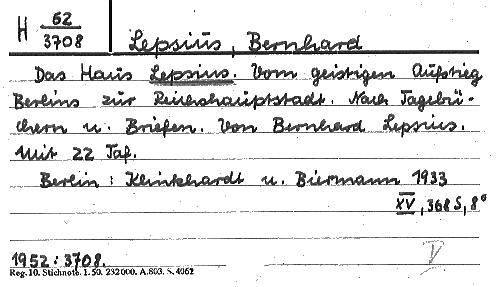 H 62/3708
Lepsius, Bernhard
Das Haus Lepsius. Vom geistigen Aufstieg
Berlins zur Reichshauptstadt. Nach Tagebü-
chern u. Briefen. Von Bernhard Lepsius.
Mit 22 Taf.
Berlin: Klinkhardt u. Biermann 1933
XV, 368 S, 8°
1952:3708.
Reg. 10. Stichnotb. 1. 50. 232000. A.803. S. 4062